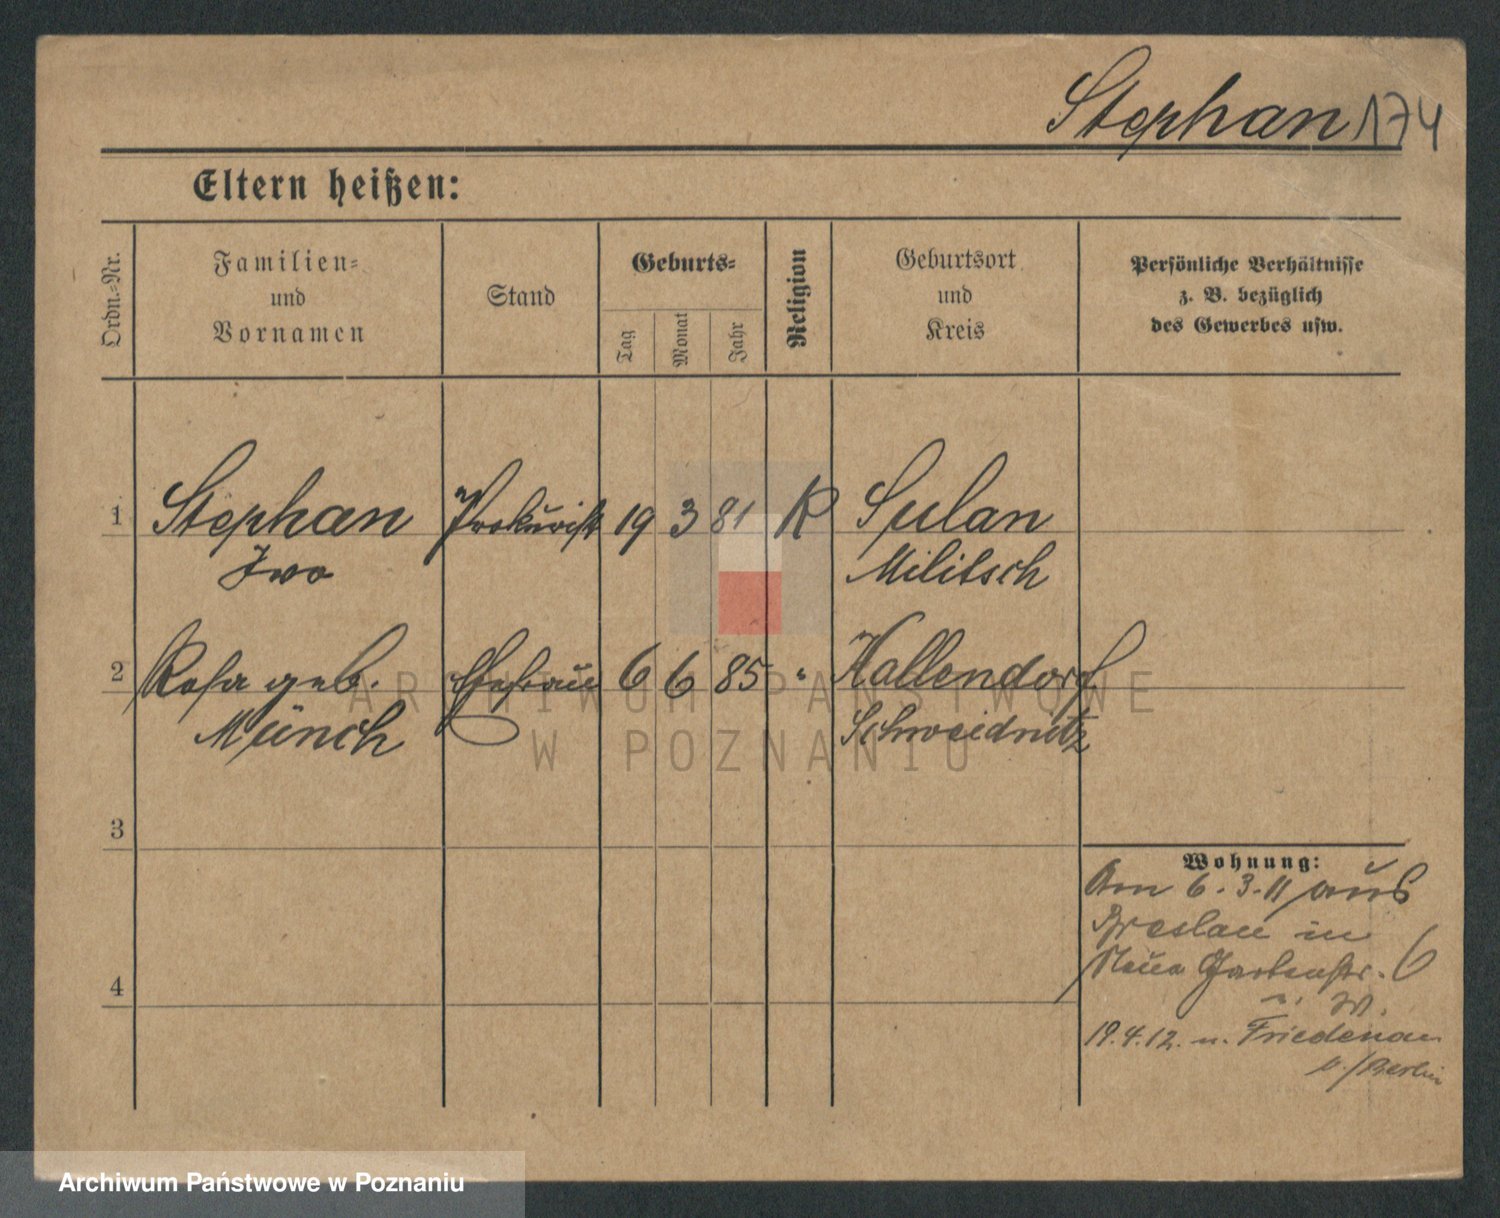 Stephan 174
Eltern heißen:
Ordn.-Nr.
Familien-
und
Vornamen
Stand
Geburts-
Tag
Monat
Jahr
Religion
Geburtsort
und
Kreis
Persönliche Verhältnisse
z. B. bezüglich
des Gewerbes usw.
1 Stephan Prokurist 19 3 81 K Sulan
Iwo Militsch
2 Rosa geb. Ehefrau 6 6 85 " Kallendorf
Münch Schweidnitz
3
4
Wohnung:
Am 6.3.11 aus
Breslau in
Neue Gartenstr. 6
u. W.
19.4.12. n. Friedenau
b/Berlin
ARCHIWUM PAŃSTWOWE
W POZNANIU
Archiwum Państwowe w Poznaniu